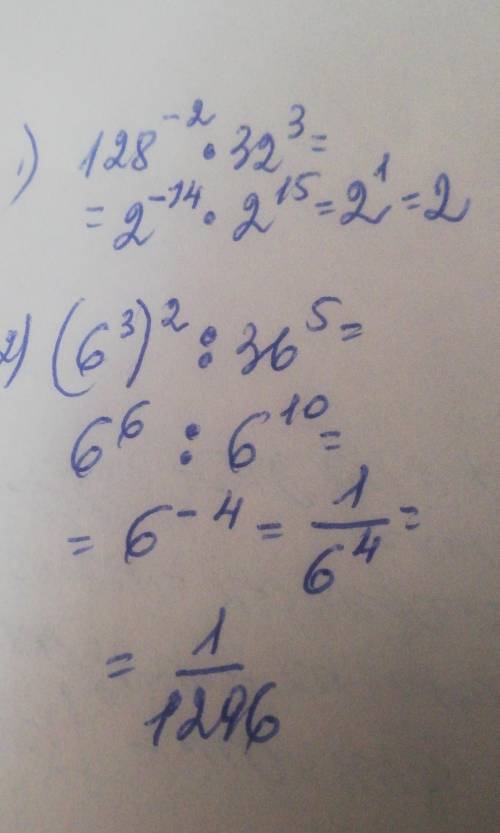 1) 128⁻² · 32³ =
= 2⁻¹⁴ · 2¹⁵ = 2¹ = 2
2) (6³)² : 36⁵ =
6⁶ : 6¹⁰ =
= 6⁻⁴ = 1/6⁴ =
= 1/1296